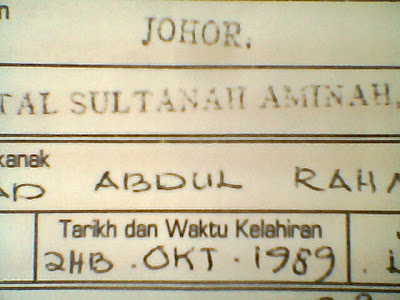 JOHOR.
TAL SULTANAH AMINAH,
kanak
AD ABDUL RAH
Tarikh dan Waktu Kelahiran
2HB . OKT . 1989